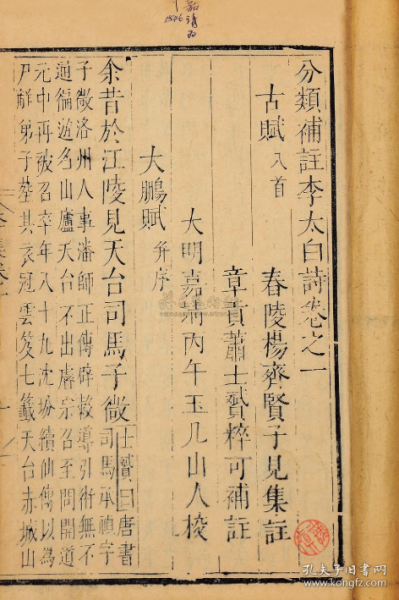 分類補註李太白詩卷之一
古賦八首
春陵楊齊賢子見集註
章貢蕭士贇粹可補註
大明嘉靖丙午玉几山人校
大鵬賦并序
余昔於江陵見天台司馬子微
士贇曰唐書
司馬承禎字
子微洛州人事潘師正傳辟穀導引術無不
通徧遊名山廬天台不出睿宗召至問開道
元中再被召卒年八十九沈汾續仙傳以為
尸解弟子葬其衣冠雲笈七籤天台赤城山
孔夫子旧书网
www.kongfz.com